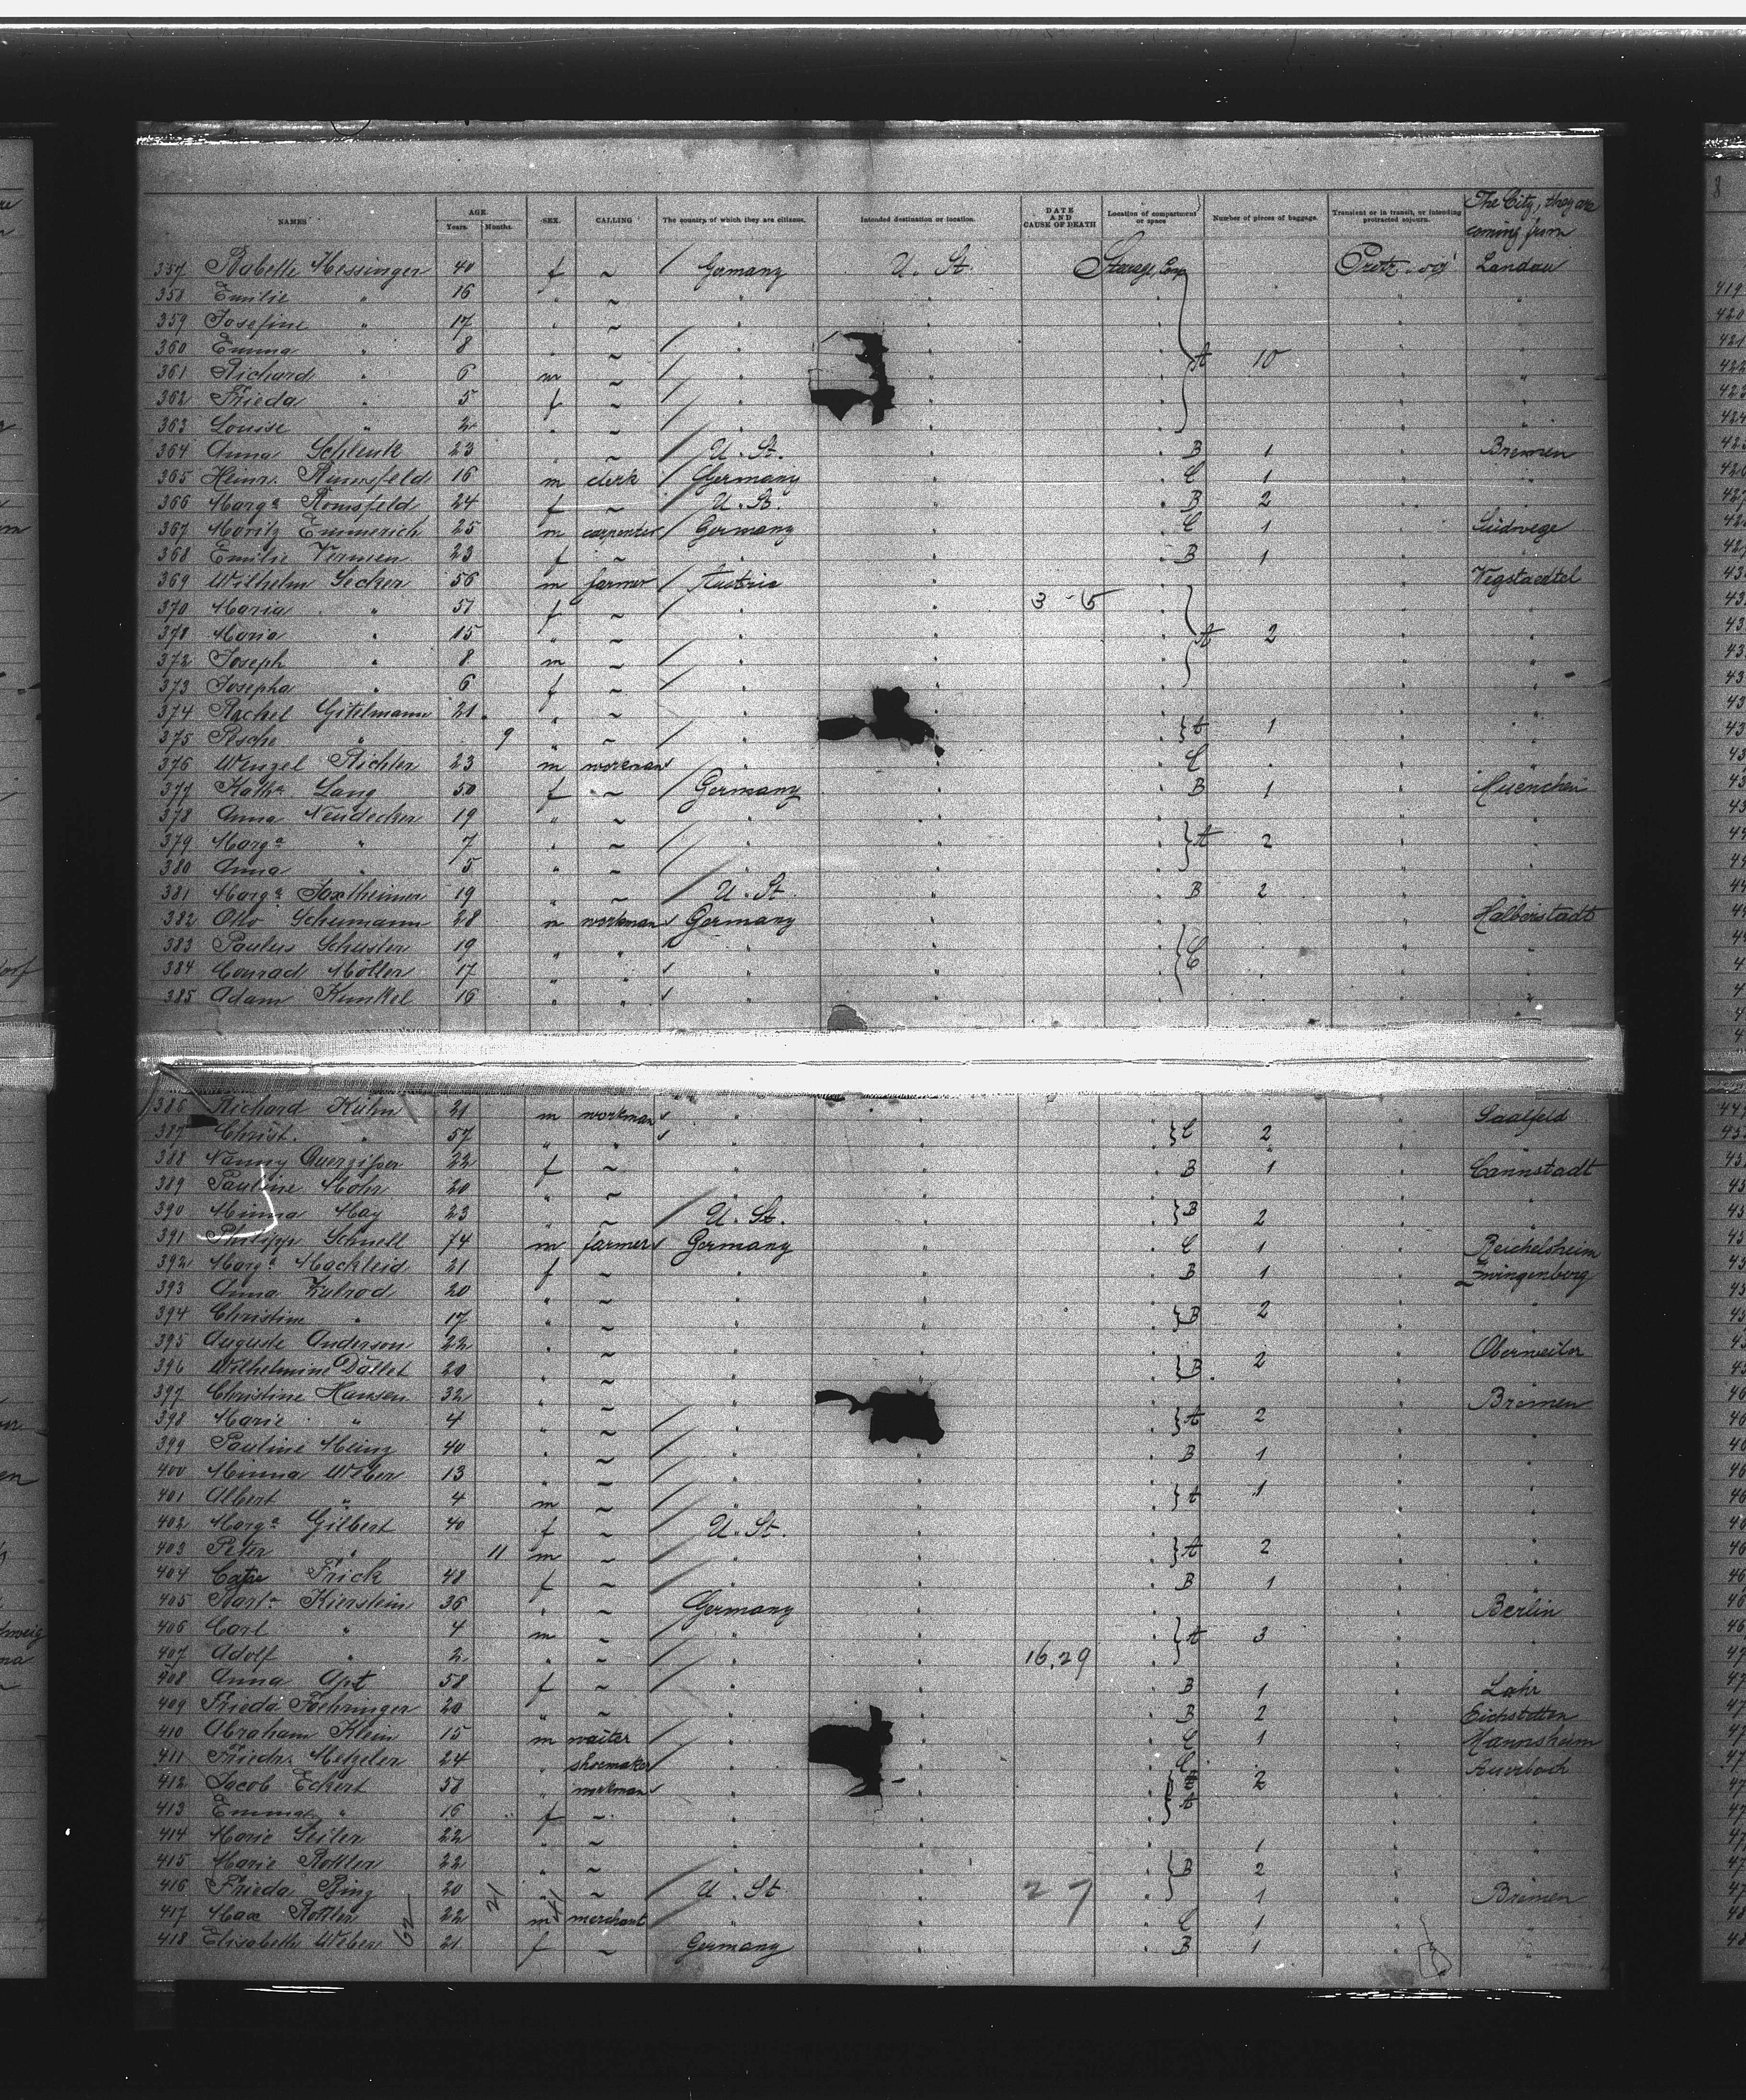 NAMES AGE. Years. Months. SEX. CALLING The country of which they are citizens. Intended destination or location. DATE AND CAUSE OF DEATH Location of compartment or space Number of pieces of baggage. Transient or in transit, or intending protracted sojourn. The City, they are coming from
357 Babette Messinger 40 f ~ Germany U. St. Landau
358 Emilie " 16 " ~ "
359 Josefine " 17 " ~ "
360 Emma " 8 " ~ " A 10
361 Richard " 6 m ~ "
362 Frieda " 5 f ~ "
363 Louise " 2 " ~ "
364 Anna Schlenk 23 " ~ U. St. B 1 Bremen
365 Heinr. 16 m clerk Germany C 1 "
366 Marg. Romsfeld 24 f ~ U. St. B 2 "
367 Moritz Emmerich 25 m carpenter Germany C 1 Südwege
368 Emilie 23 f ~ " B 1 "
369 Wilhelm 56 m farmer Austria Wegstaedtel
370 Maria " 51 f ~ " 3 - 5
371 Maria " 15 " ~ " A 2
372 Joseph " 8 m ~ "
373 Josepha " 6 f ~ "
374 Rachel Gitelmann 21 " ~ "
375 " 9 " ~ " A 1
376 Wenzel Richter 23 m workman " C
377 Kath. Lang 50 f ~ Germany B 1 Muenchen
378 Anna Neudecker 19 " ~ "
379 Marg. " 7 " ~ " A 2
380 Anna " 5 " ~ "
381 Marg. 19 " ~ U. St. B 2
382 Otto Schumann 28 m workman Germany Halberstadt
383 Paulus Schuster 19 " " " C
384 Conrad Möller 17 " " "
385 Adam Kunkel 16 " " "
386 Richard Kühn 21 m workman " Saalfeld
387 Christ. " 57 " " " C 2
388 Nanny 22 f ~ " B 1 Cannstadt
389 Pauline Mohr 20 " ~ "
390 Minna May 23 " ~ U. St. B 2
391 Philipp Schnell 74 m farmer Germany C 1 Reichelsheim
392 Marg. Mackleid 21 f ~ " B 1 Zwingenberg
393 Anna Kulrod 20 " ~ "
394 Christine " 17 " ~ " B 2
395 Auguste Anderson 22 " ~ " Oberweiler
396 Wilhelmine Dallet 20 " ~ " B 2
397 Christine Hansen 32 " ~ " Bremen
398 Marie " 4 " ~ " A 2
399 Pauline Heinz 40 " ~ " B 1
400 Minna Weber 13 " ~ "
401 Albert " 4 m ~ " A 1
402 Marg. Gilbert 40 f ~ U. St.
403 Peter " 11 m ~ " A 2
404 Frick 48 f ~ " B 1
405 Kierstein 36 " ~ Germany Berlin
406 Carl " 4 m ~ " A 3
407 Adolf " 2 " ~ " 16,29
408 Anna Apt 58 f ~ " B 1 Lahr
409 Frieda Foehringer 20 " ~ " B 2 Eichstetten
410 Abraham Klein 15 m waiter " C 1
411 Friedr. Metzeler 24 " shoemaker " C Auerbach
412 Jacob Eckert 58 " workman " 2
413 Emma " 16 f ~ " A
414 Marie Seiler 22 " ~ " 1
415 Marie Rottler 22 " ~ " B 2
416 Frieda Bing 20 " ~ U. St 27 1 Bremen
417 Max Rottler 22 m merchant " C 1
418 Elisabeth Weber 21 f ~ Germany B 1
62 21 41